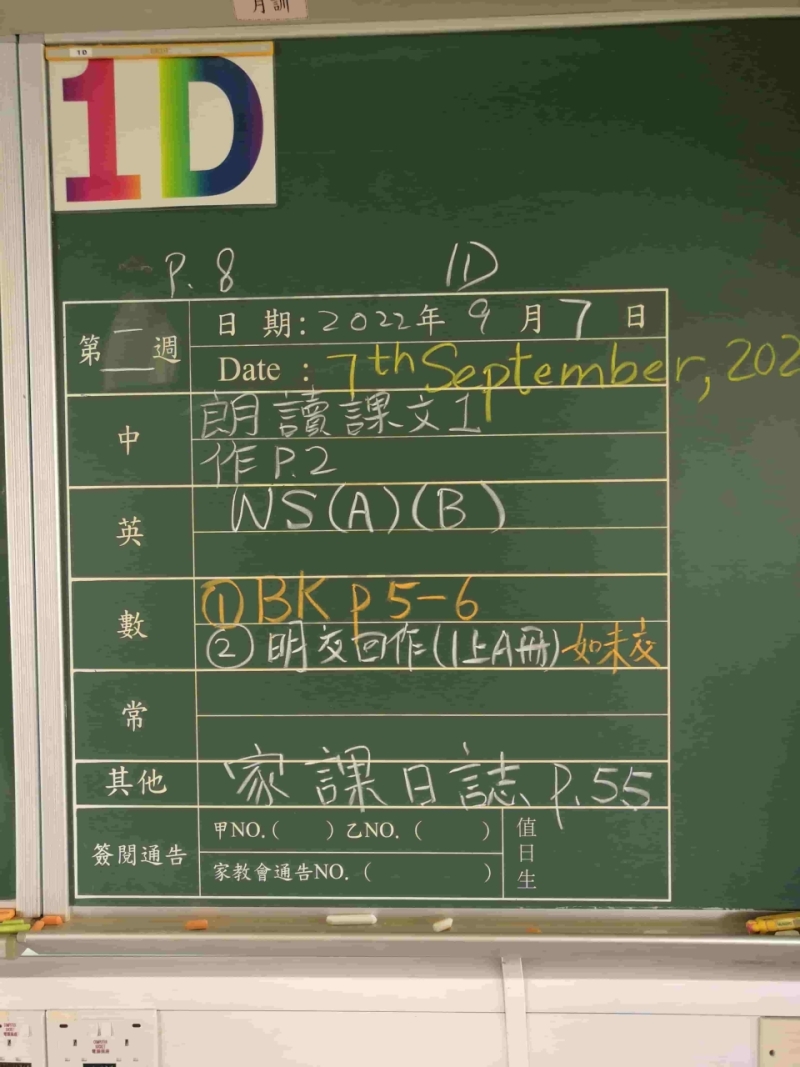 月訓
10
1D
P. 8 1D
第二週
日 期:2022年 9 月 7 日
Date : 7th September, 202
中
朗讀課文1
作P.2
英
WS(A)(B)
數
①BK p 5-6
②明交回作(1上A冊)如未交
常
其他 家課日誌 p.55
簽閱通告
甲NO.( )乙NO. ( )
家教會通告NO. ( )
值日生